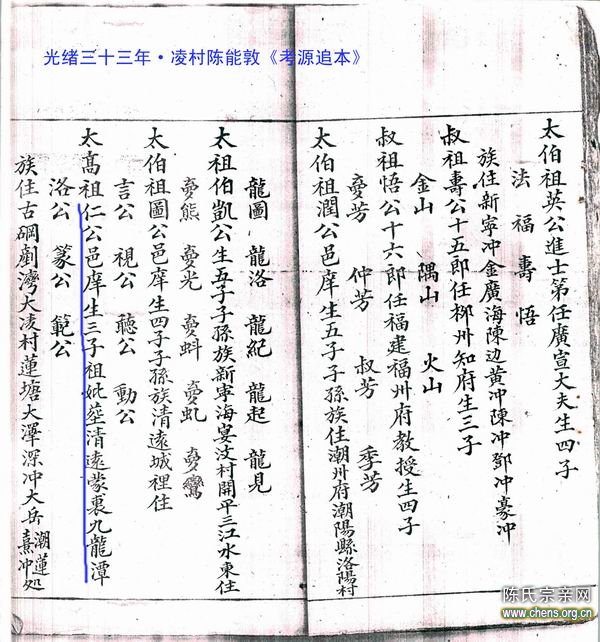 光绪三十三年·凌村陈能敦《考源追本》
太伯祖英公進士第任廣宣大夫生四子
法 福 壽 悟
族住新寧冲金廣海陳边黄冲陳冲鄧冲豪冲
叔祖壽公十五郎任柳州知府生三子
金山 隅山 火山
叔祖悟公十六郎任福建福州府教授生四子
仲芳 叔芳 季芳
太伯祖潤公邑庠生五子子孫族住潮州府潮陽縣洛陽村
龍圖 龍洛 龍紀 龍起 龍見
太祖伯凱公生五子子孫族新寧海宴汶村開平三江水東住
太伯祖圖公邑庠生四子子孫族清遠城裡住
言公 視公 聴公 動公
太高祖仁公邑庠生三子祖妣葬清遠蒙裏九龍潭
洛公 篆公 範公
族住古岡劏灣大凌村蓮塘大澤深冲大岳潮蓮処熹冲
陈氏宗亲网
www.chens.org.cn